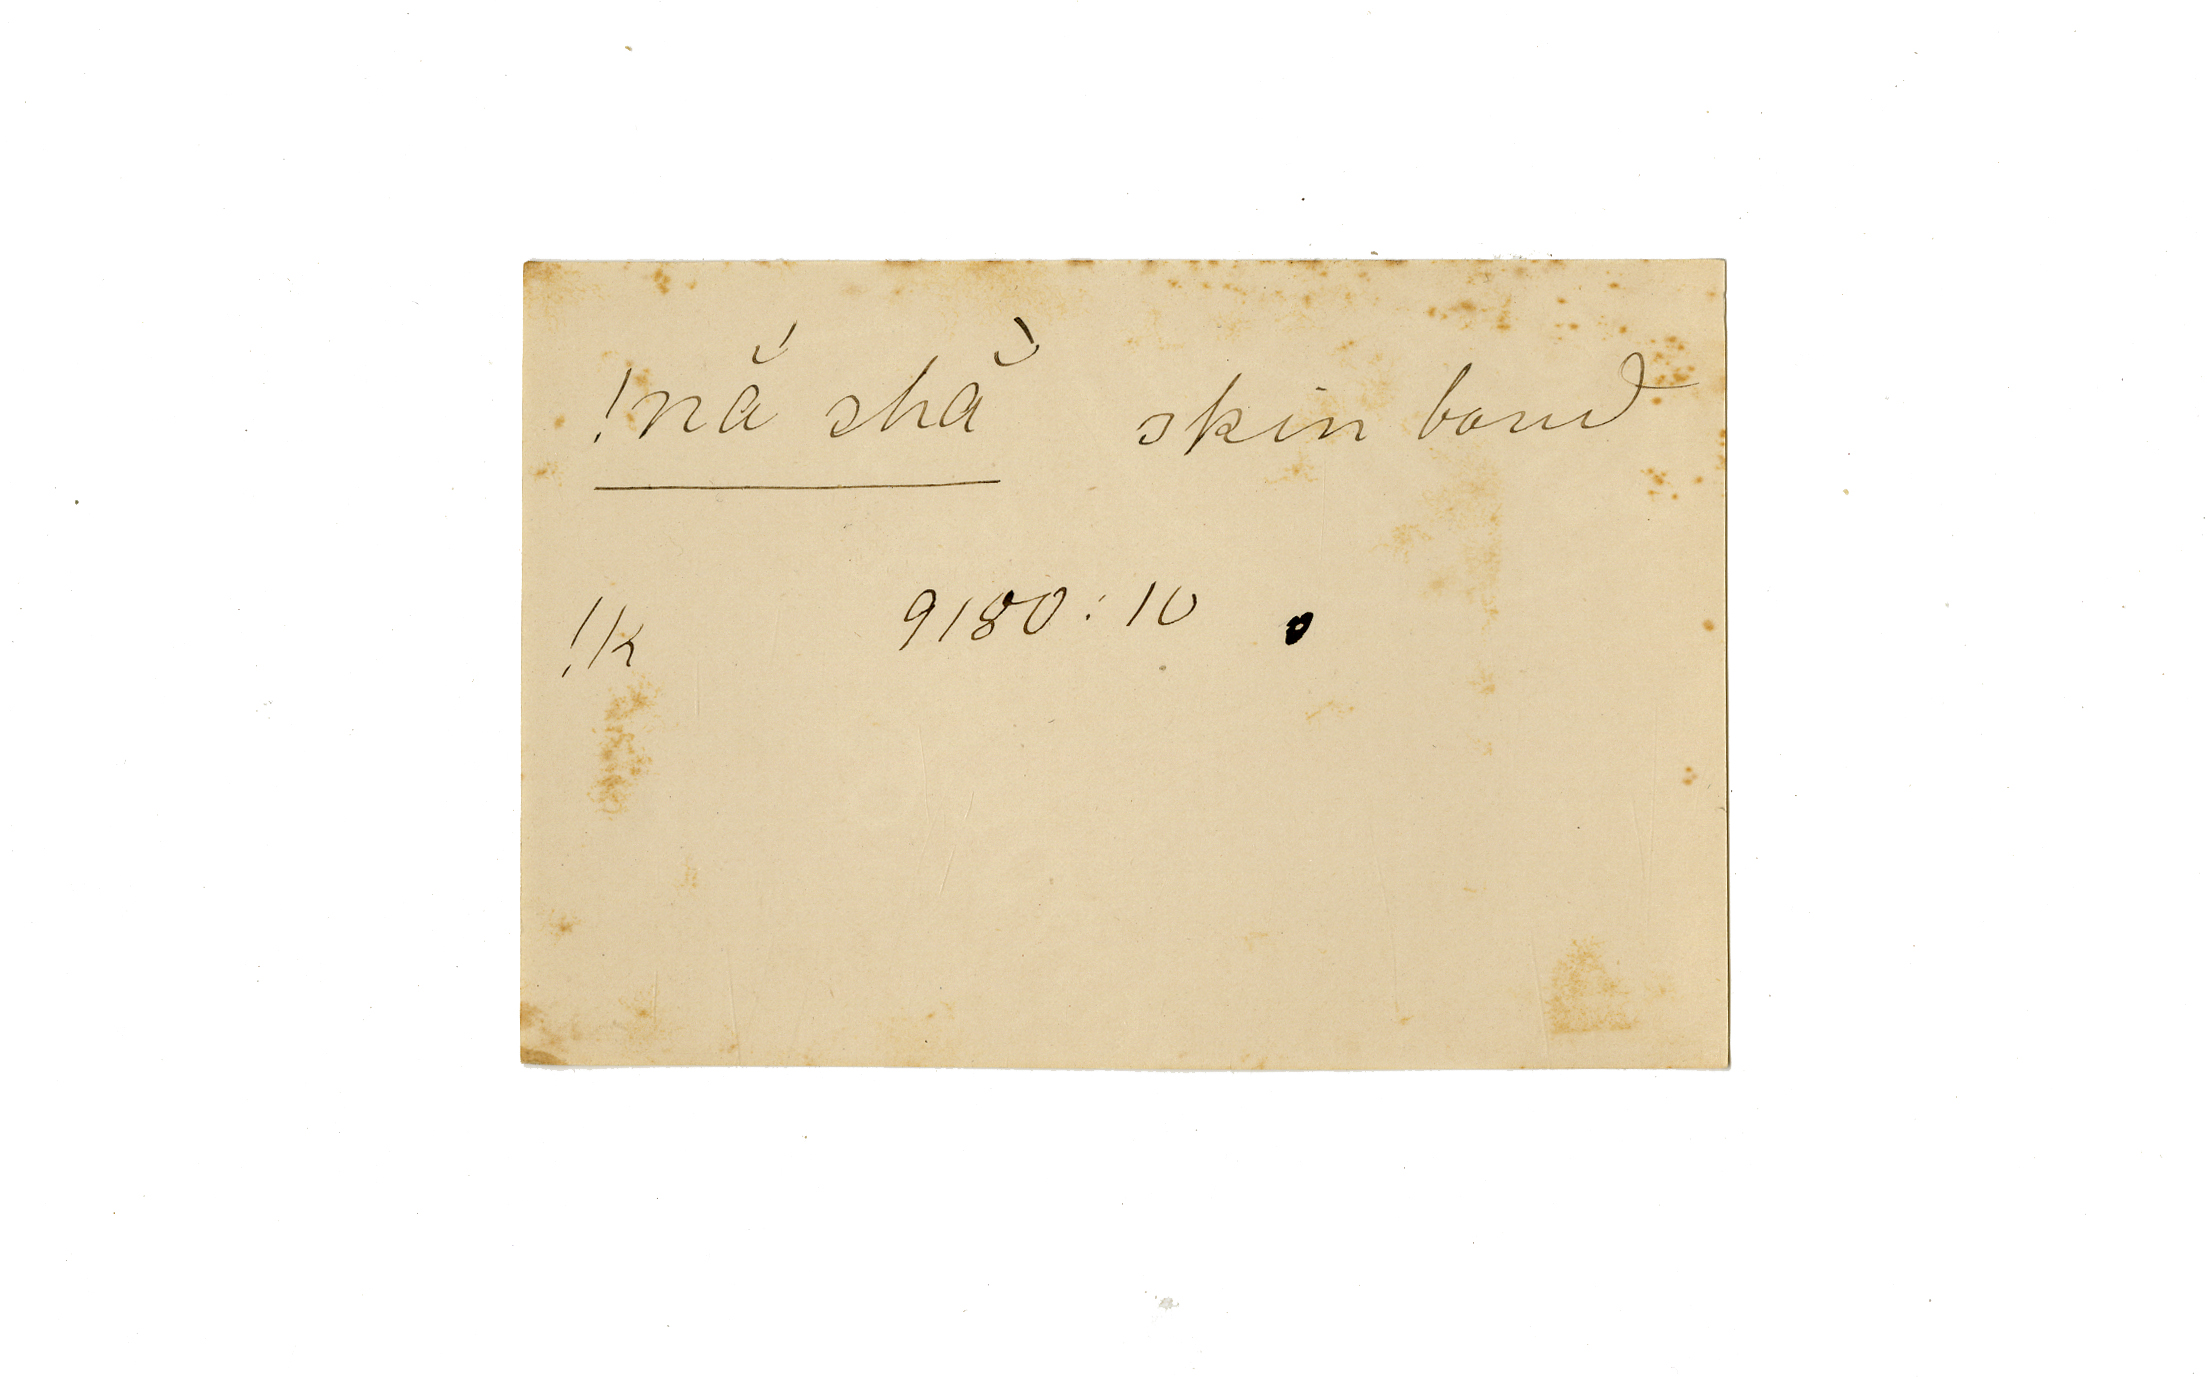 !nắ shằ skin band
!k 9180:10